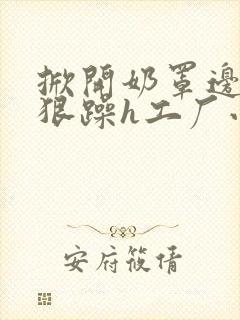 掀開奶罩邊
狠躁h工厂
安府筱倩